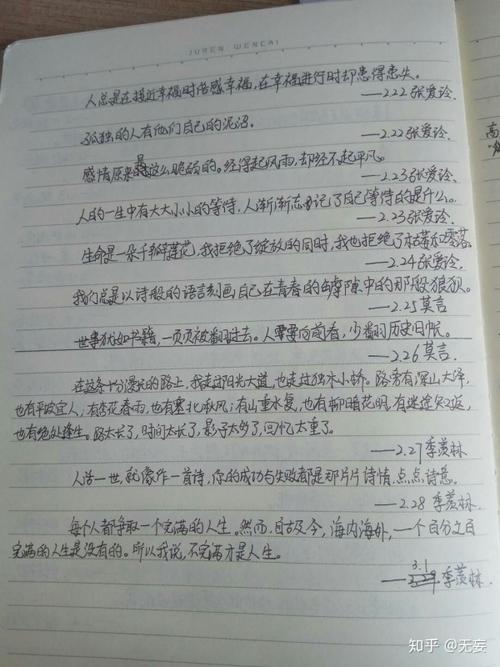 JUREN WENCAI
人总是在接近幸福时倍感幸福，在幸福进行时却患得患失。
——2.22张爱玲.
孤独的人有他们自己的泥沼。
——2.22张爱玲.
感情原来是这么脆弱的。经得起风雨，却经不起平凡。
——2.23张爱玲.
人的一生中有大大小小的等待，人渐渐忘记了自己等待的是什么。
——2.23张爱玲.
生命是一朵千瓣莲花，我拒绝了绽放的同时，我也拒绝了枯萎和零落
——2.24张爱玲.
我们总是以诗般的语言刻画自己在青春的罅隙中的那段狼狈。
——2.25莫言
世事犹如书籍，一页页被翻过去。人要向前看，少翻历史旧帐。
——2.26莫言.
在这条十分漫长的路上，我走过阳光大道，也走过独木小桥。路旁有深山大泽，
也有平坡宜人；有杏花春雨，也有塞北秋风；有山重水复，也有柳暗花明；有迷途知返，
也有绝处逢生。路太长了，时间太长了，影子太多了，回忆太重了。
——2.27季羡林
人活一世，就像作一首诗，你的成功与失败都是那片片诗情，点点诗意。
——2.28 季羡林.
每个人都争取一个完满的人生。然而，自古及今，海内海外，一个百分之百
完满的人生是没有的。所以我说，不完满才是人生。
——3.1 季羡林.
高
知乎 @无妄